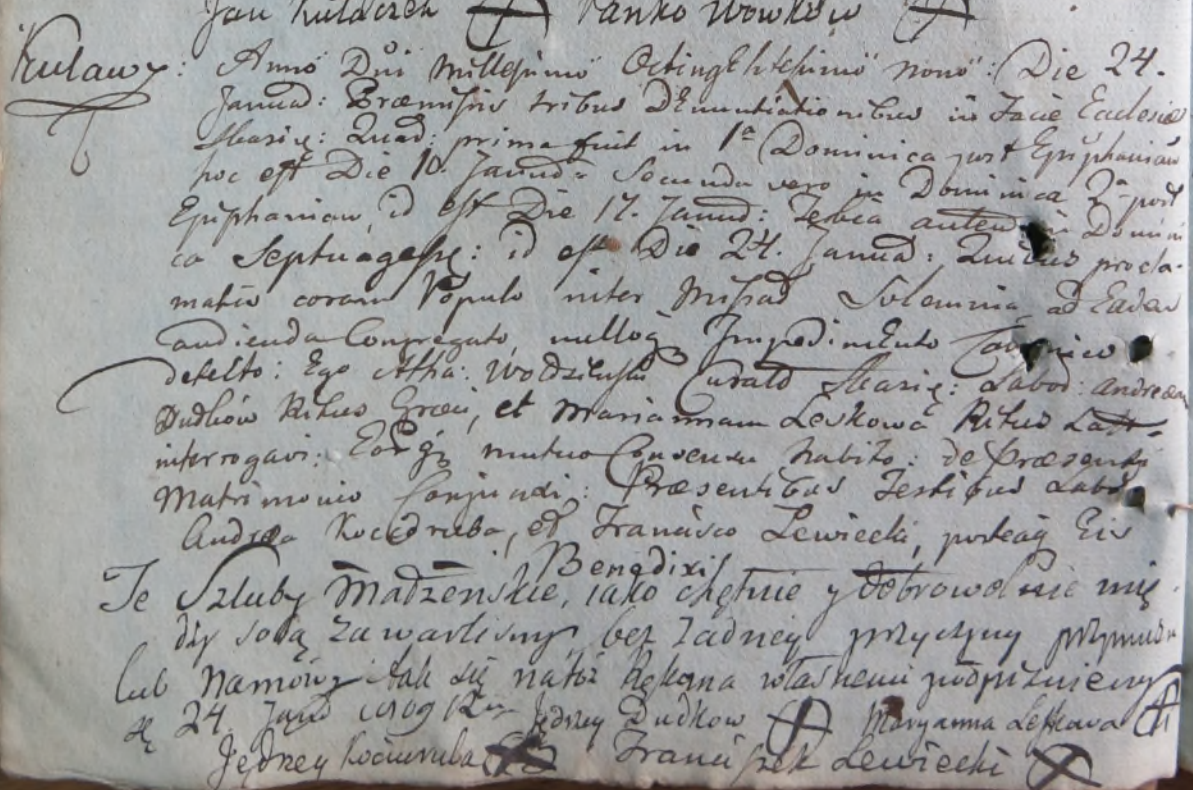 Jan Kulaczek Panko Wowkow
Kulawy: Anno Dni Millesimo Octingentesimo nono: Die 24.
Januar: Praemissis tribus Denuntiationibus in Facie Ecclesiae
prima fuit in 1ª Dominica post Epiphaniam
hoc est Die 10. Januar: Secunda vero in Dominica 2ª post
Epiphaniam, id est Die 17. Januar: Tertia autem in Domini
ca Septuages: id est Die 24. Januar: procla-
matis coram Populo inter Missar Solemnia ad Eadem
audienda Congregato, nulloq Impedimento Canonico
detecto: Ego Atha: Curat Labor: Andream
Dudkow Ritus Graeci, et Mariannam Leskowa Ritus Latt-
interrogavi: Eorq mutuo Consensu habito: de Praesenti
Matrimonio Conjunxi: Praesentibus Testibus Labor
Andrea Kociuruba, et Francisco Lewiecki, posteaq Eis
Benedixi
Te Szluby Madzenskie, iako chętnie y dobrowolnie mię
dzy sobą zawarlismy, bez żadney przyczyny przymusu
lub Namowy tak się natoż Rękoma własnemi podpiżuiemy
24. Janu 1809 Jędrzey Dudkow Maryanna Leskowa
Jędrzey Kociuruba Franciszek Lewiecki